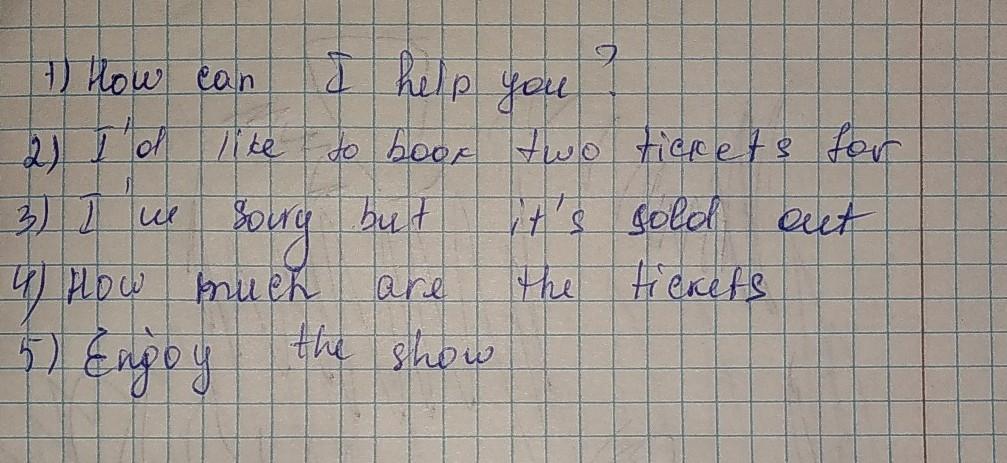 1) How can I help you?
2) I'd like to book two tickets for
3) I'm sorry but it's sold out
4) How much are the tickets
5) Enjoy the show